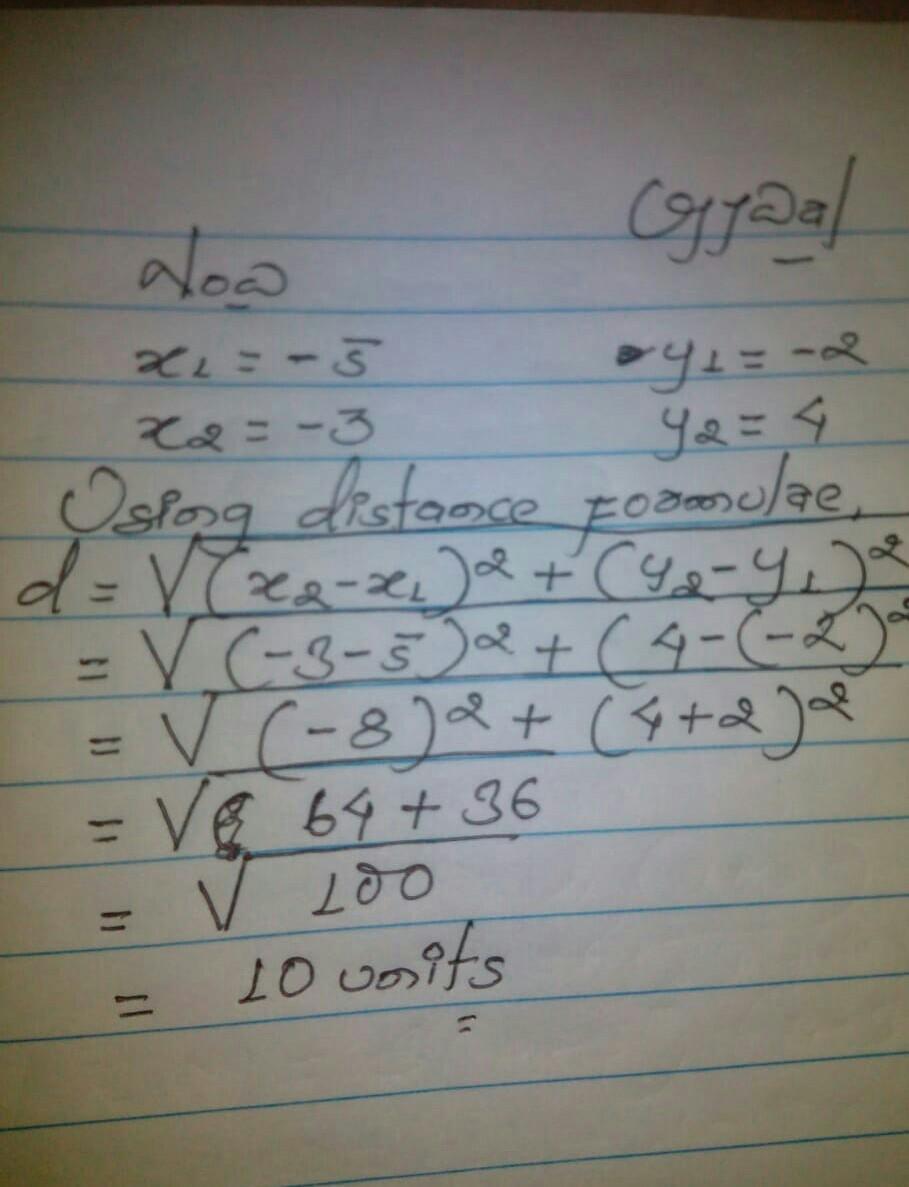 Now
x1 = -5 y1 = -2
x2 = -3 y2 = 4
Using distance formulae,
d = √(x2-x1)² + (y2-y1)²
= √(-3-5)² + (4-(-2)²
= √(-8)² + (4+2)²
= √ 64 + 36
= √ 100
= 10 units